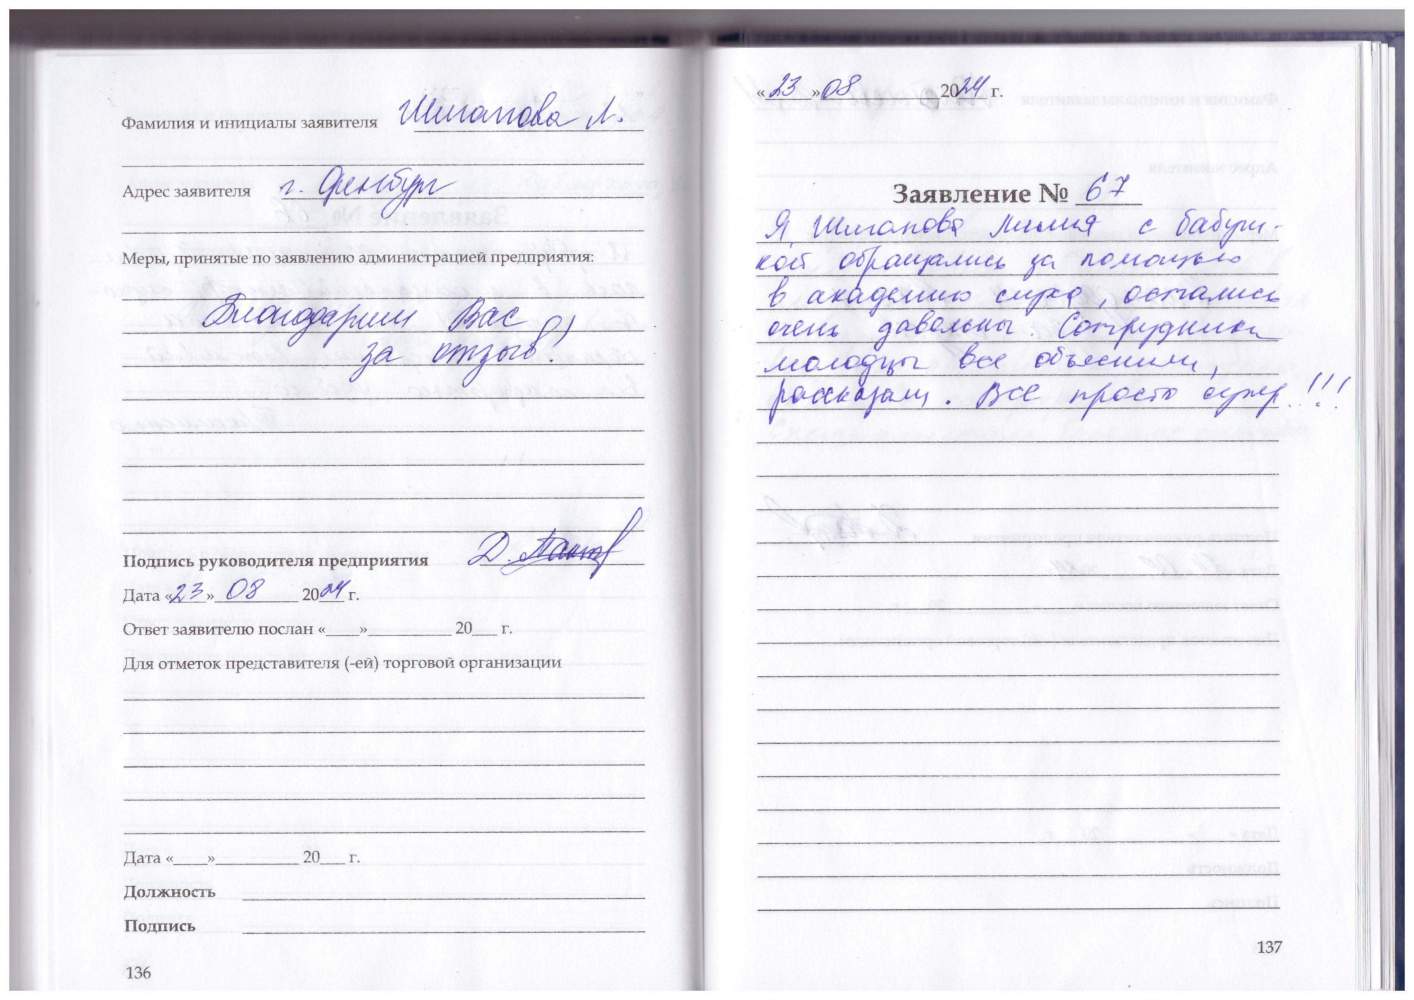 Фамилия и инициалы заявителя Шматова Л.
Адрес заявителя г. Оренбург
Меры, принятые по заявлению администрацией предприятия:
Благодарим Вас
за отзыв!)
Подпись руководителя предприятия
Дата «23» 08 2024 г.
Ответ заявителю послан «____»__________ 20___ г.
Для отметок представителя (-ей) торговой организации
Дата «____»__________ 20___ г.
Должность
Подпись
136
«23» 08 2024 г.
Заявление № 67
Я, Шматова Лилия с бабуш-
кой обращались за помощью
в академию слуха, остались
очень давольны. Сотрудники
молодцы все объяснили,
рассказали. Всё просто супер!!!
137